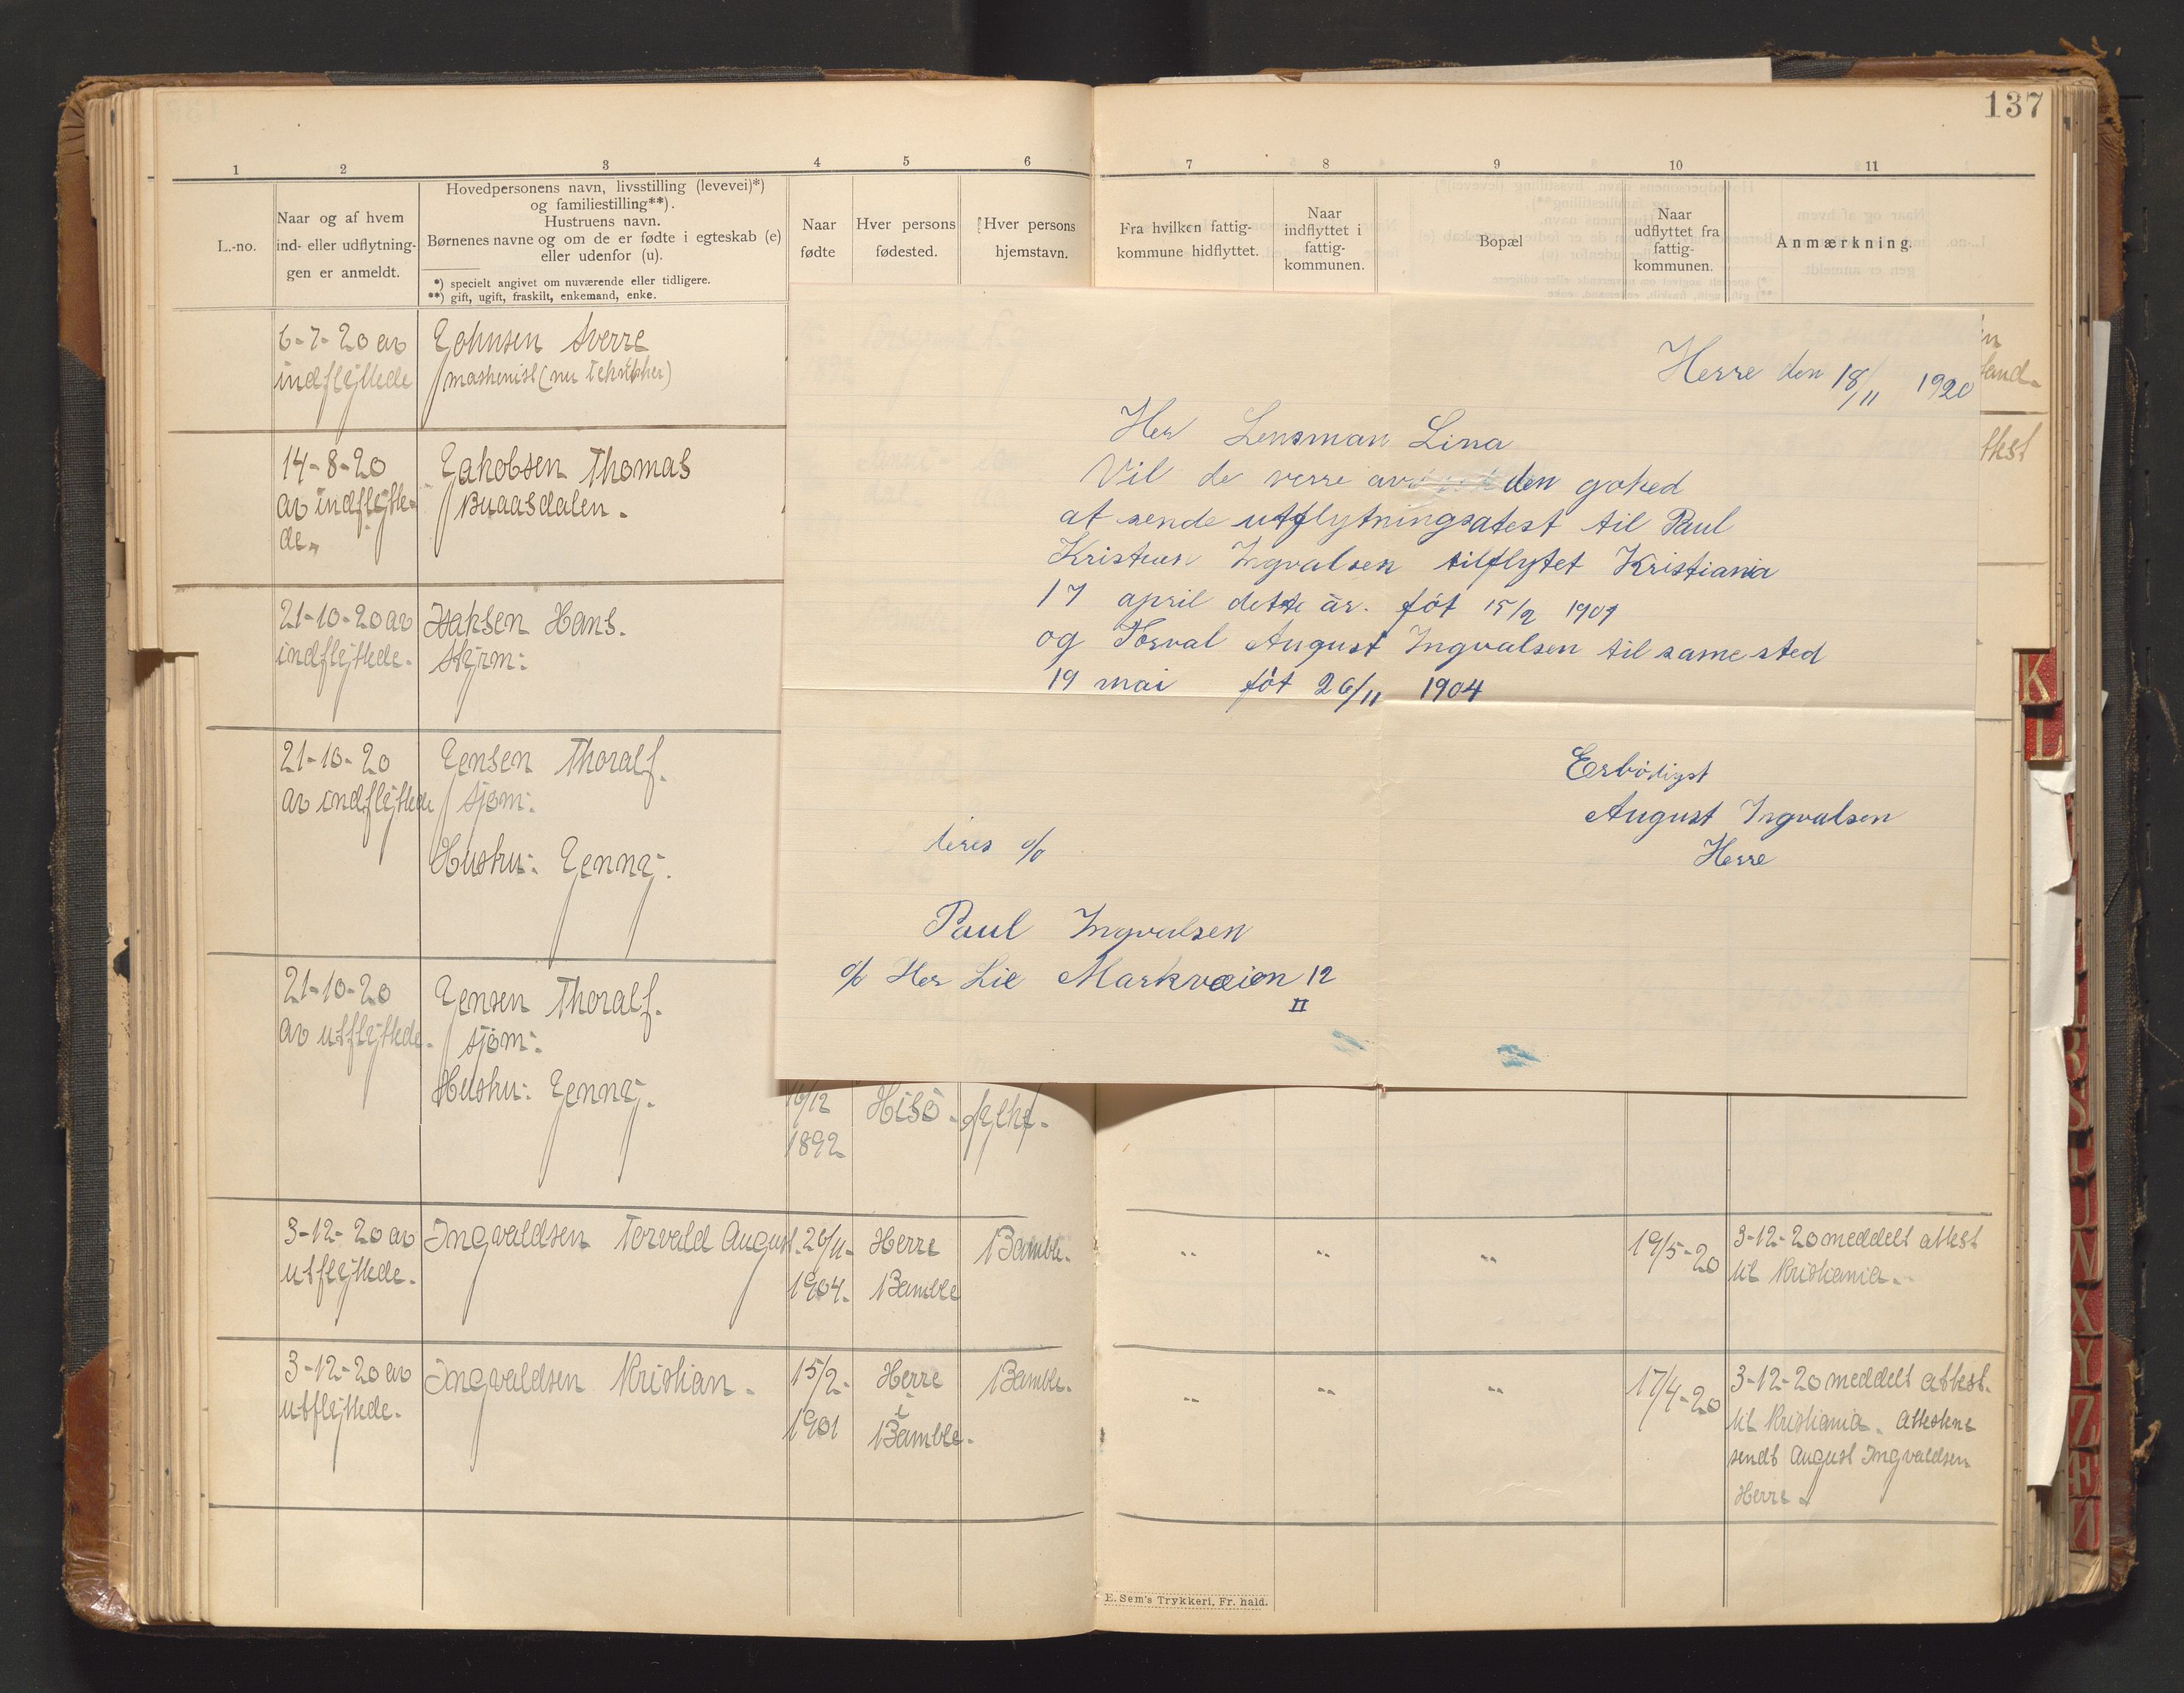 137
1
2
3
4
5
6
7
8
9
10
11
L.-no.
Naar og af hvem
ind- eller udflytning-
gen er anmeldt.
Hovedpersonens navn, livsstilling (levevei)*)
og familiestilling**).
Hustruens navn.
Børnenes navne og om de er fødte i egteskab (e)
eller udenfor (u).
*) specielt angivet om nuværende eller tidligere.
**) gift, ugift, fraskilt, enkemand, enke.
Naar
fødte
Hver persons
fødested.
Hver persons
hjemstavn.
Fra hvilken fattig-
kommune hidflyttet.
Naar
indflyttet i
fattig-
kommunen.
Bopæl
Naar
udflyttet fra
fattig-
kommunen.
Anmærkning.
6-7-20 av
indflyttede
Johnsen Sverre
maskenist (nu
14-8-20
av indflytte-
de.
Jakobsen Thomas
Buaasdalen.
21-10-20 av
indflyttede.
Isaksen Hans.
Styrm:
21-10-20
av indflyttede
Jensen Thoralf.
sjøm:
Hustru: Jenny.
21-10-20
av utflyttede.
Jensen Thoralf.
sjøm:
Hustru: Jenny.
16/12
1892-
Hisø.
3-12-20 av
utflyttede.
Ingvaldsen Torvald August.
26/11-
1904.
Herre
Bamble
Bamble.
19/5-20
3-12-20 meddelt attest
til Kristiania.
3-12-20 av
utflyttede.
Ingvaldsen Kristian.
15/2-
1901
Herre
i
Bamble.
Bamble.
17/4-20
3-12-20 meddelt attest.
til Kristiania. Attestene
sendt August Ingvaldsen
Herre.
Herre den 18/11 1920
Her Lensman Lina
Vil de verre av den gohed
at sende utflytningsatest til Paul
Kristian Ingvalsen tilflytet Kristiania
17 april dette år. føt 15/2 1901
og Torval August Ingvalsen til same sted
19 mai føt 26/11 1904
Erbødigst
August Ingvalsen
Herre
c/o
Paul Ingvalsen
c/o Her Lie Markvæien 12
II
E. Sem's Trykkeri, Fr. hald.
K
L
X
Y
Z
Æ